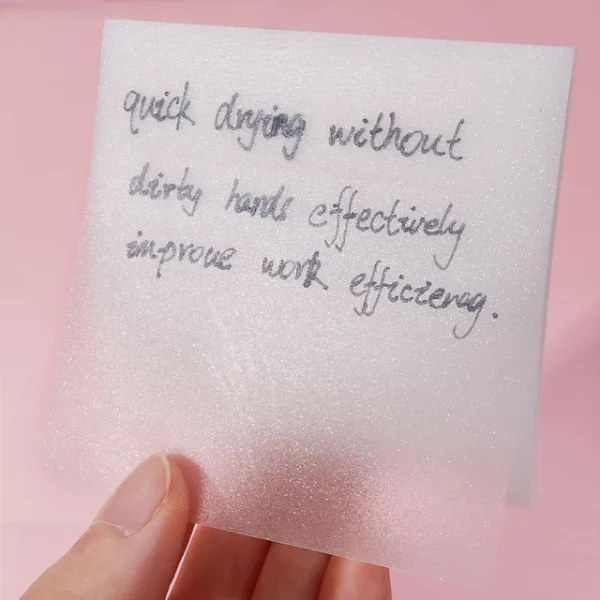 quick drying without
dirty hands effectively
improve work efficiency.